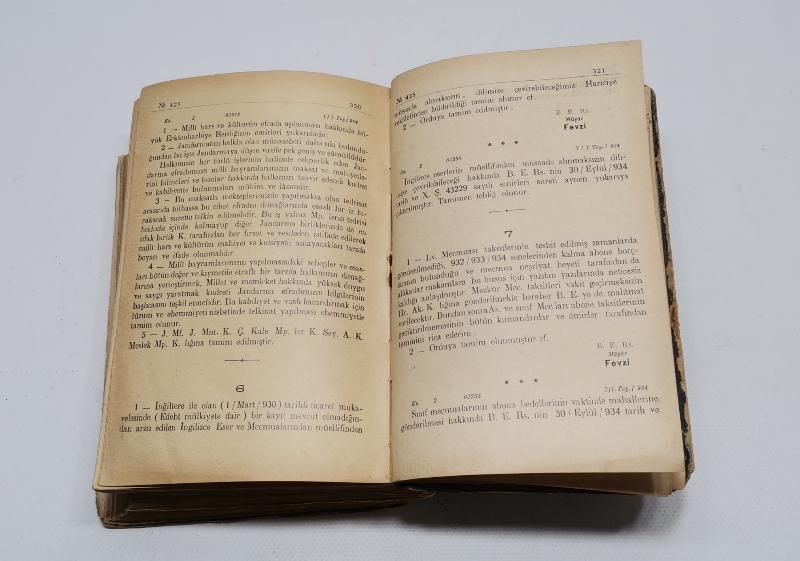 № 425 320
Ks. 2 61212 7 / I. Teş. / 934
1 — Millî hars ve kültürün efrada aşılanması hakkında bü-
yük Erkânıharbiye Reisliğinin emirleri yukarıdadır.
2 — Jandarmanın halkla olan münasebeti daha sıkı bulundu-
ğundan bu işte Jandarmaya düşen vazife pek geniş ve şümullüdür.
Halkımızın her türlü işlerinin halinde rehperlik eden Jan-
darma efradımızın millî bayramlarımızın maksat ve mahiyetle-
rini bilmeleri ve bunlar hakkında halkımızı tenvir edecek kudret
ve kabiliyette bulunmaları mühim ve lâzımdır.
3 — Bu maksatla mekteplerimizde yapılmakta olan tedrisat
arasında bilhassa bu cihet efradın dimağlarında esaslı bir iz bı-
rakacak surette telkin edilmelidir. Bu iş yalnız Mp. lerın tedrisi
hududu içinde kalmayıp diğer Jandarma birliklerinde de en
ufak birlik K. tarafından her fırsat ve vesileden istifade edilerek
millî hars ve kültürün mahiyet ve kutsiyeti; anlayacakları tarzda
beyan ve ifade olunmalıdır
4 — Millî bayramlarımızın yapılmasındaki sebepler ve esas-
ları bütün değer ve kıymetile etraflı bir tarzda halkımızın dimağ-
larına yerleştirmek, Millet ve memleket hakkında yüksek duygu
ve saygı yaratmak kudreti Jandarma efradımızın bilgilerinin
başlıcasını teşkil etmelidir. Bu kabiliyet ve vasfı kazandırmak için
lüzum ve ehemmiyeti nisbetinde telkinat yapılması ehemmiyetle
tamim olunur.
5 — J. Mf. J. Mnt. K. Ç. Kale Mp. ler K. Sey. A. K.
Meslek Mp. K. lığına tamim edilmiştir.
6
1 — İngiltere ile olan ( 1 / Mart / 930 ) tarihli ticaret muka-
velesinde ( Edebî mülkiyete dair ) bir kayıt mevcut olmadığın-
dan arzu edilen İngilizce Eser ve Mecmualarından müellifinden
№ 425 321
müsaade almaksızın , dilimize çevirebileceğimiz Hariciye
vekâletinden bildirildiği tamim olunur ef.
2 — Orduya tamim edilmiştir .
B. E. Rs.
Müşür
Fevzi
* * *
Ks. 2 61255 7 / I. Teş. / 934
İngilizce eserlerin müellifinden müsaade alınmaksızın dili-
mize çevrilebileceği hakkında B. E. Rs. nin 30 / Eylûl / 934
tarih ve X. Ş. 43229 sayılı emirleri sureti aynen yukarıya
çıkarılmıştır. Tamimen tebliğ olunur.
7
1 — Lv. Mecmuası taksitlerinin tesbit edilmiş zamanlarda
gönderilmediği, 932 / 933 / 934 senelerinden kalma abone borç-
larının bulunduğu ve mecmua neşriyat heyeti tarafından da
alâkadar makamlara bu husus için yazılan yazılarında neticesiz
kaldığı anlaşılmıştır. Mezkûr Mec. taksitleri vakit geçirmeksizin
Hr. Ak. K. lığına gönderilmekle beraber B. E. ye de malûmat
verilecektir. Bundan sonra As. ve sınıf Mec.ları abone taksitlerinin
geciktirilmemesinin bütün kumandanlar ve âmirler tarafından
teminini rica ederim .
2 — Orduya tamim olunmuştur ef.
B. E. Rs.
Müşür
Fevzi
* * *
Ks. 2 61255 7 / I. Teş. / 934
Sınıf mecmualarının abona bedellerinin vaktinde mahallerine
gönderilmesi hakkında B. E. Rs. nin 30 / Eylûl / 934 tarih ve